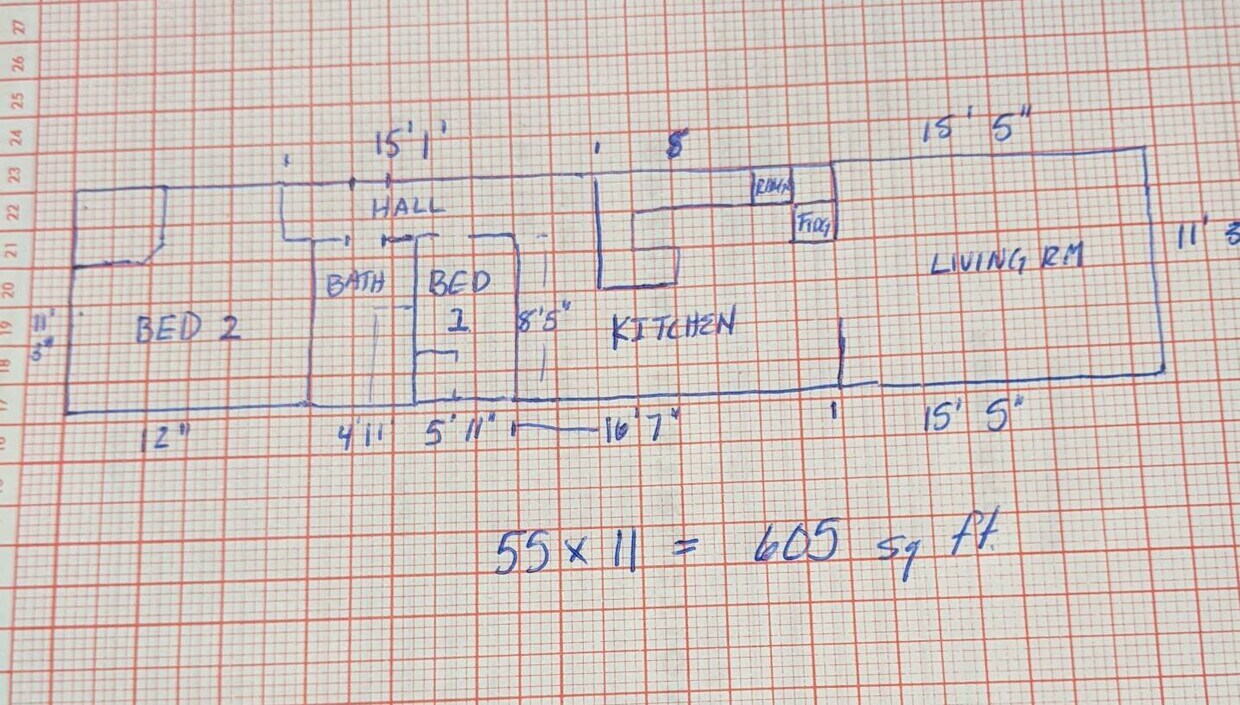 27
26
25
24
23
22
21
20
19
18
17
16
15' 1'
8
15' 5"
HALL
FIDG
BATH
BED
1
8'5"
BED 2
KITCHEN
LIVING RM
11' 3
11'
3"
12"
4'11'
5' 11"
16' 7"
15' 5"
55 x 11 = 605 sq ft.